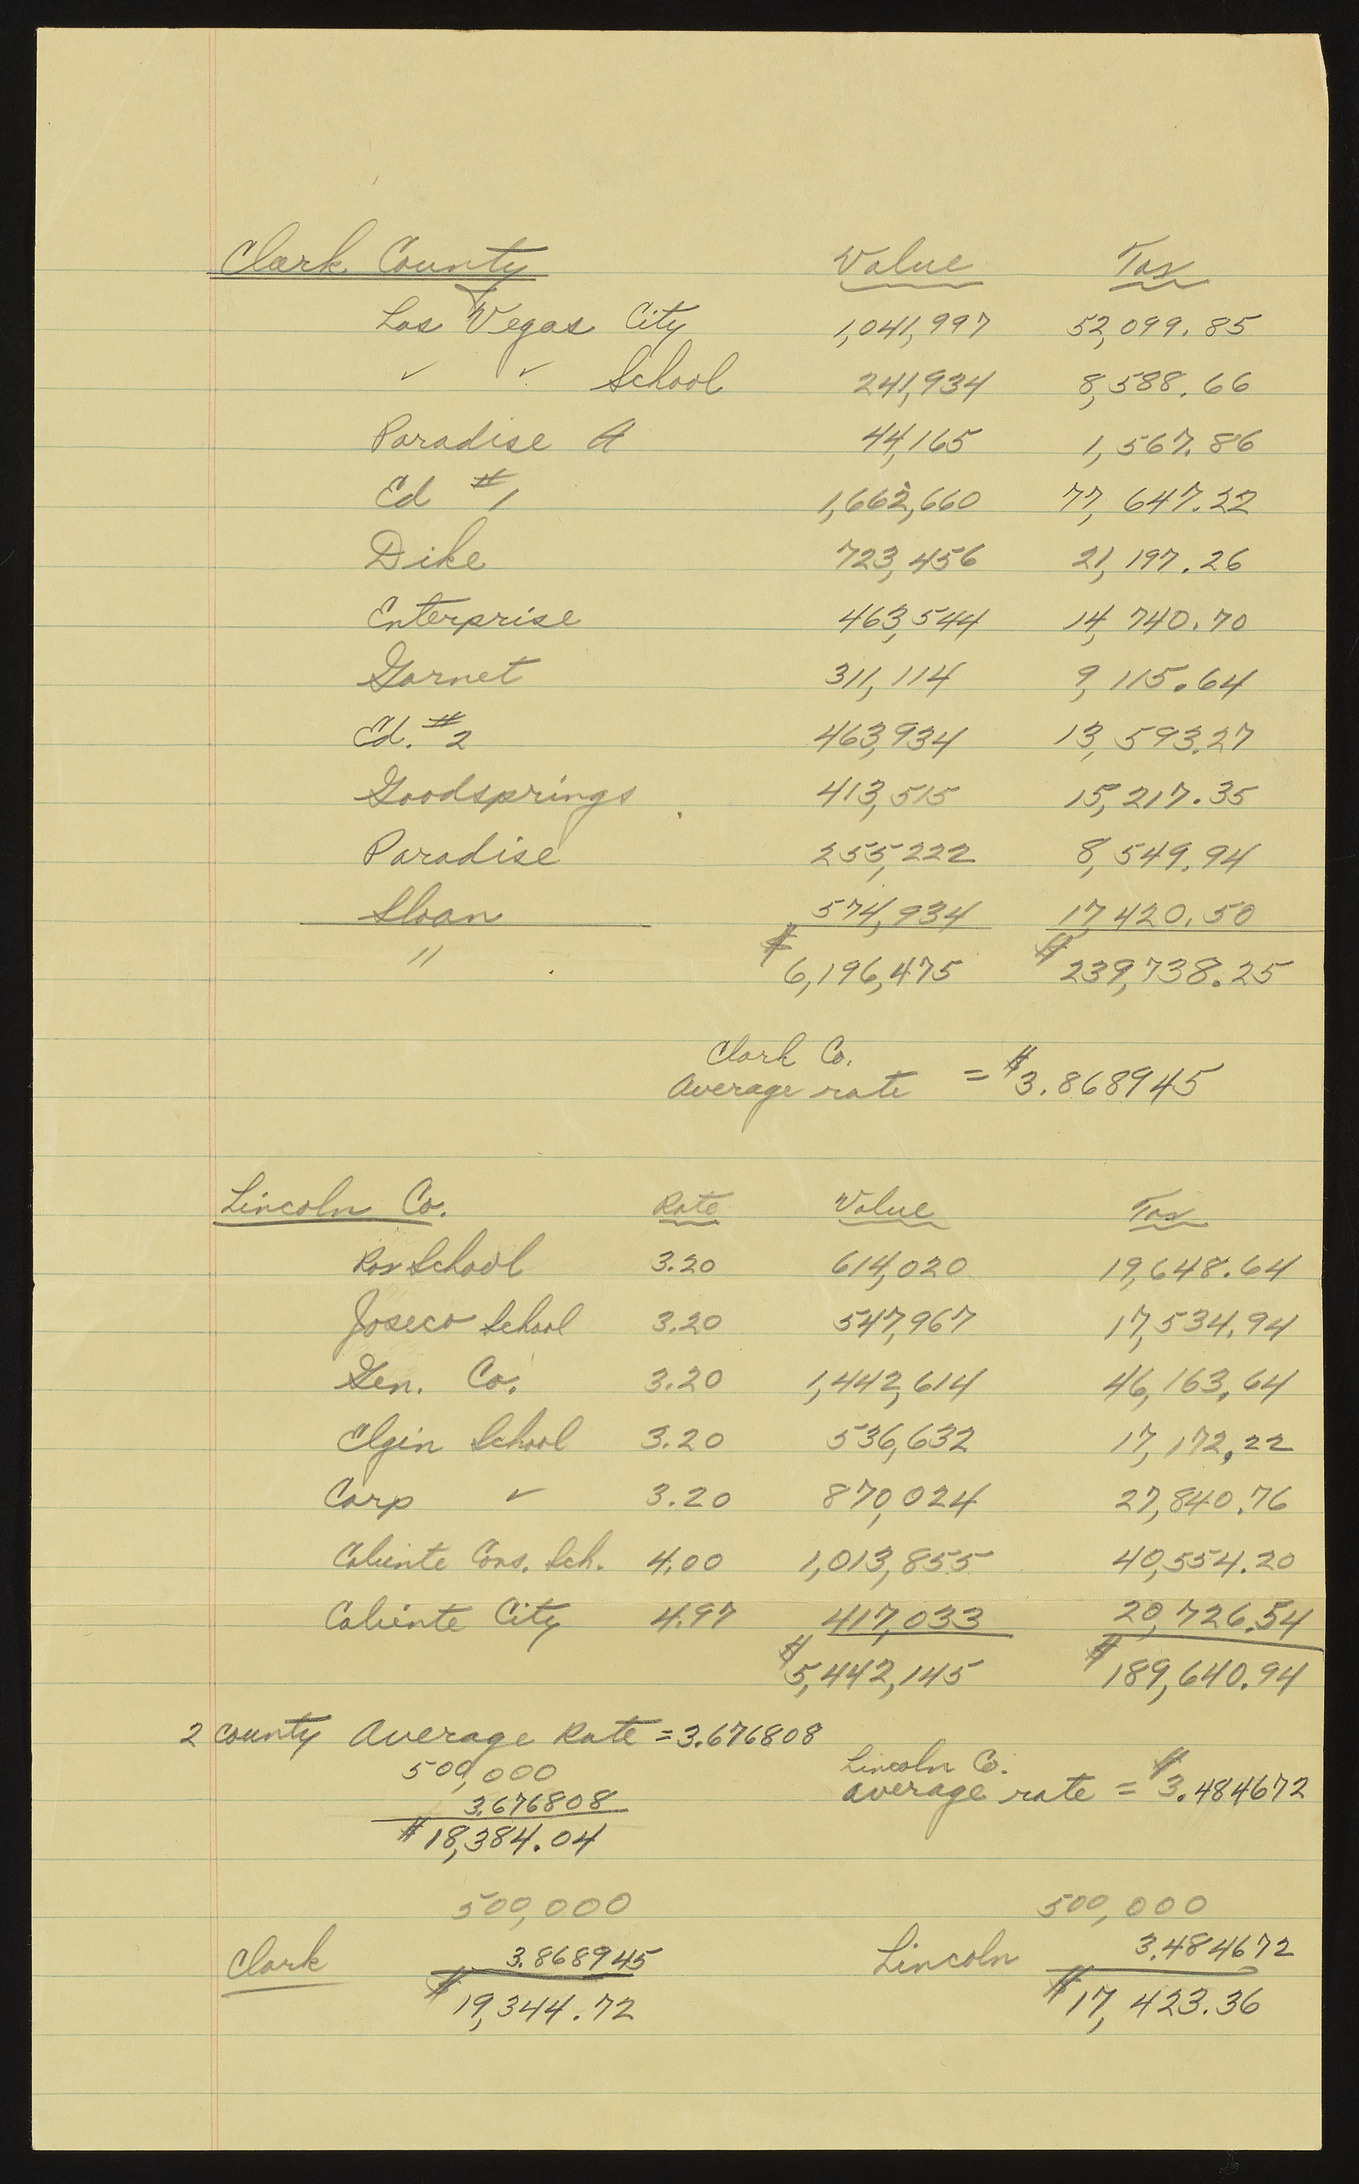 Clark County Value Tax
Las Vegas City 1,041,997 52,099.85
✓ ✓ School 241,934 8,588.66
Paradise A 44,165 1,567.86
Ed #1 1,662,660 77,647.22
Dike 723,456 21,197.26
Enterprise 463,544 14,740.70
Garnet 311,114 9,115.64
Ed. #2 463,934 13,593.27
Goodsprings 413,515 15,217.35
Paradise 255,222 8,549.94
Sloan 574,934 17,420.50
" $6,196,475 $239,738.25
Clark Co.
Average rate = $3.868945
Lincoln Co. Rate Value Tax
Rox School 3.20 614,020 19,648.64
Joseco School 3.20 547,967 17,534.94
Gen. Co. 3.20 1,442,614 46,163.64
Elgin School 3.20 536,632 17,172.22
Carp ✓ 3.20 870,024 27,840.76
Caliente Cons. Sch. 4.00 1,013,855 40,554.20
Caliente City 4.97 417,033 20,726.54
$5,442,145 $189,640.94
2 county Average Rate = 3.676808
500,000
3.676808
$18,384.04
Lincoln Co.
average rate = $3.484672
500,000
Clark 3.868945
$19,344.72
500,000
Lincoln 3.484672
$17,423.36